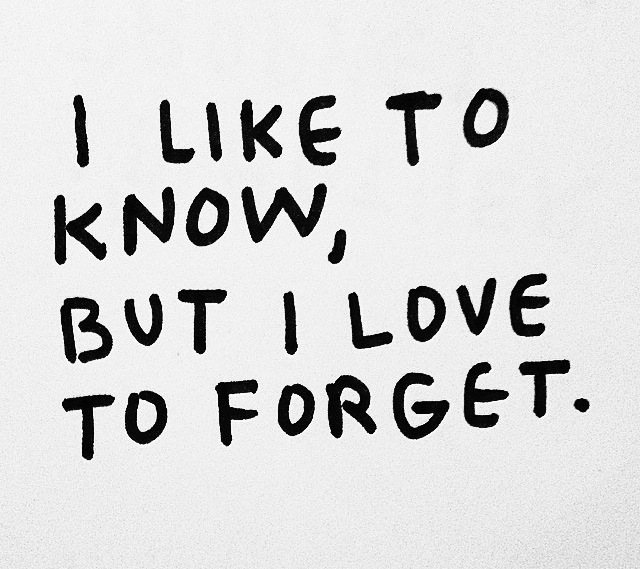 I LIKE TO
KNOW,
BUT I LOVE
TO FORGET.